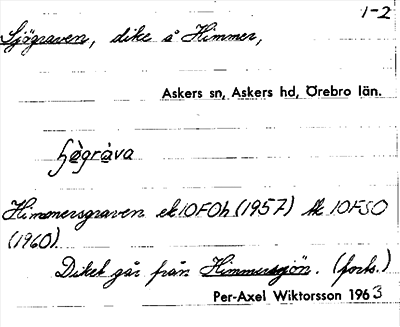 1-2
Sjögraven, dike å Himmer,
Askers sn, Askers hd, Örebro län.
Himmersgraven ek 10F0h (1957) tk 10FSO
(1960).
Diket går från Himmersjön. (forts.)
Per-Axel Wiktorsson 1963